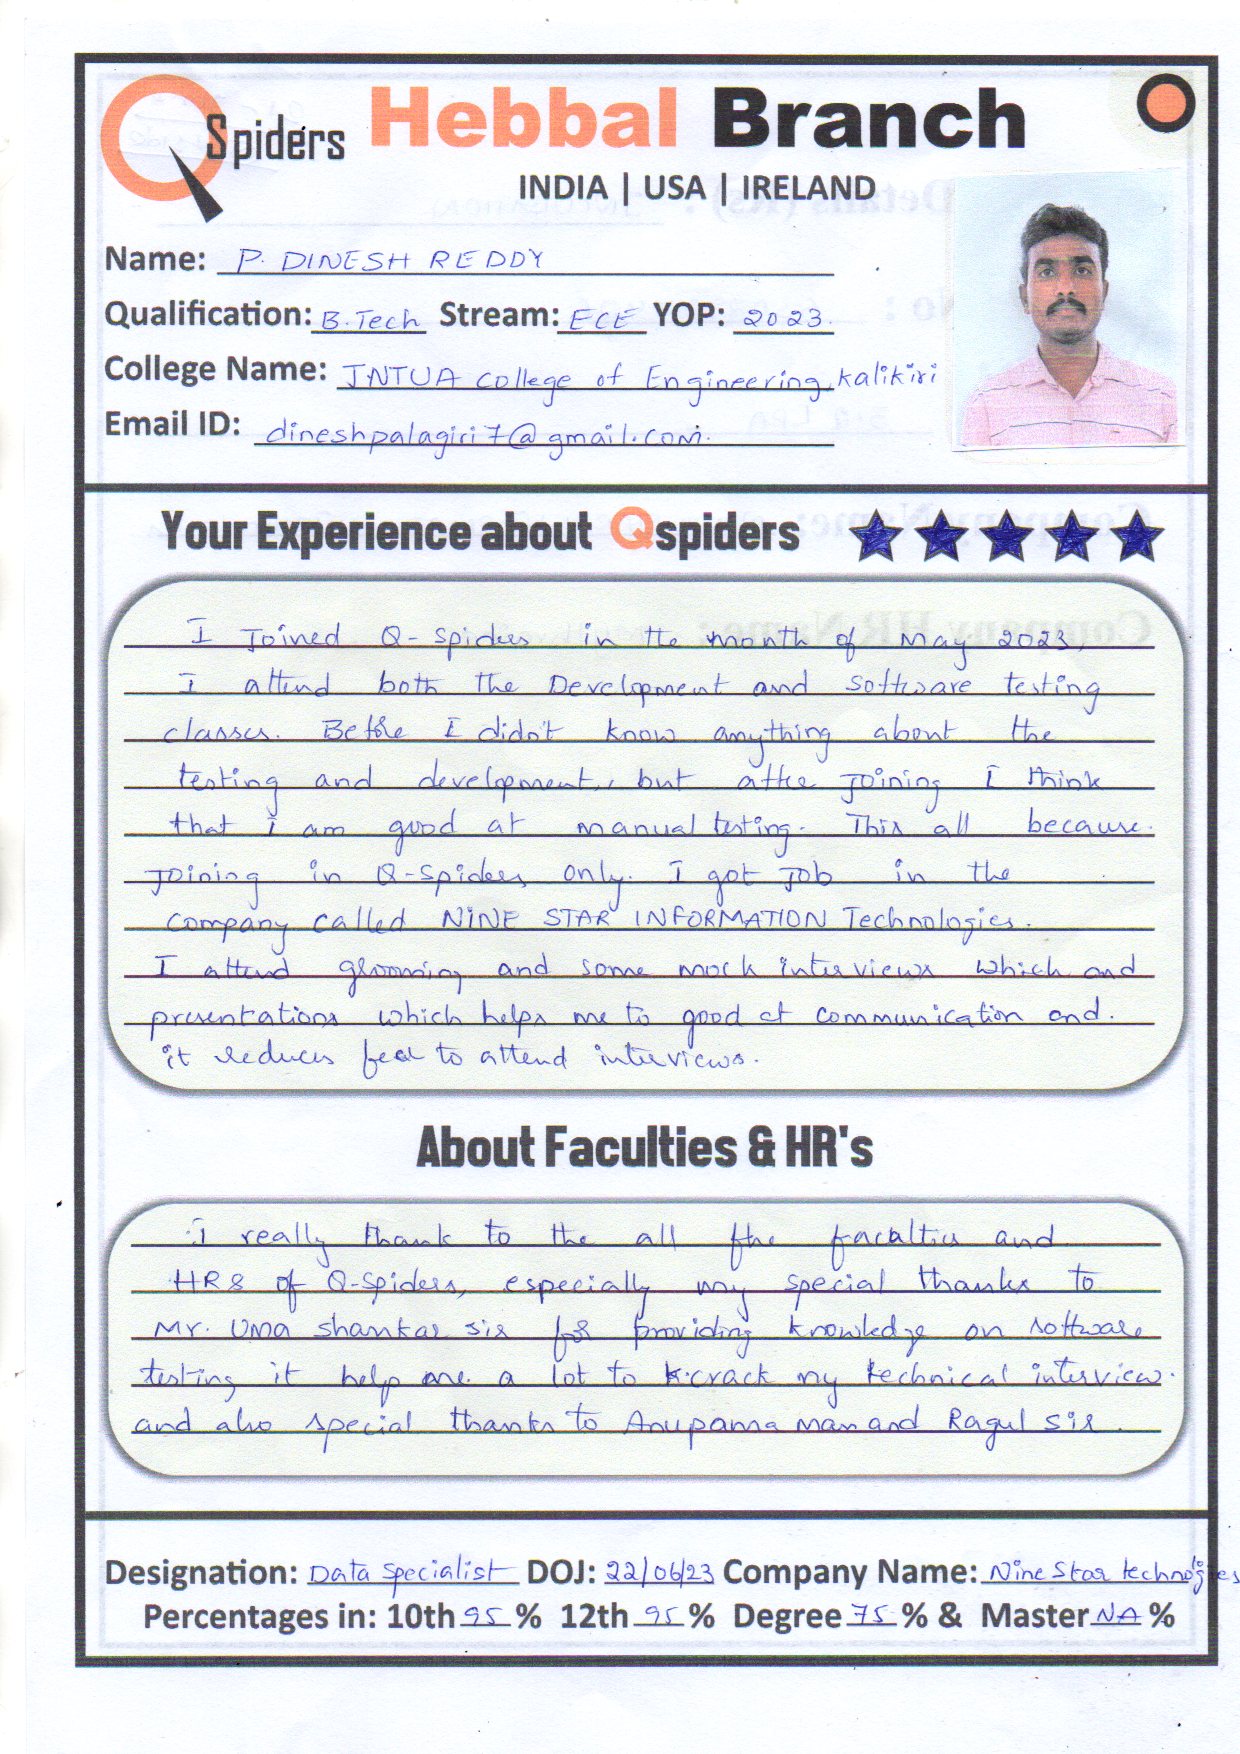 QSpiders Hebbal Branch
INDIA | USA | IRELAND
Name: P. DINESH REDDY
Qualification: B.Tech Stream: ECE YOP: 2023.
College Name: JNTUA College of Engineering, kalikiri
Email ID: dineshpalagiri7@gmail.com.
Your Experience about Qspiders
I Joined Q-spiders in the month of May 2023,
I attend both the Development and software testing
classes. Before I didn't know anything about the
testing and development, but after Joining I think
that I am good at manual testing. This all because.
Joining in Q-Spiders only. I got Job in the
company called NINE STAR INFORMATION Technologies.
I attend grooming and some mock interviews which and
presentations which helps me to good at communication and.
it reduces fear to attend interviews.
About Faculties & HR's
I really thank to the all the faculties and
HRs of Q-Spiders, especially my special thanks to
Mr. Uma Shankar sir for providing knowledge on software
testing it help me a lot to crack my technical interview.
and also special thanks to Anupama mam and Ragul sir.
Designation: Data Specialist DOJ: 22/06/23 Company Name: Nine Star technologies
Percentages in: 10th 95 % 12th 95 % Degree 75 % & Master NA %